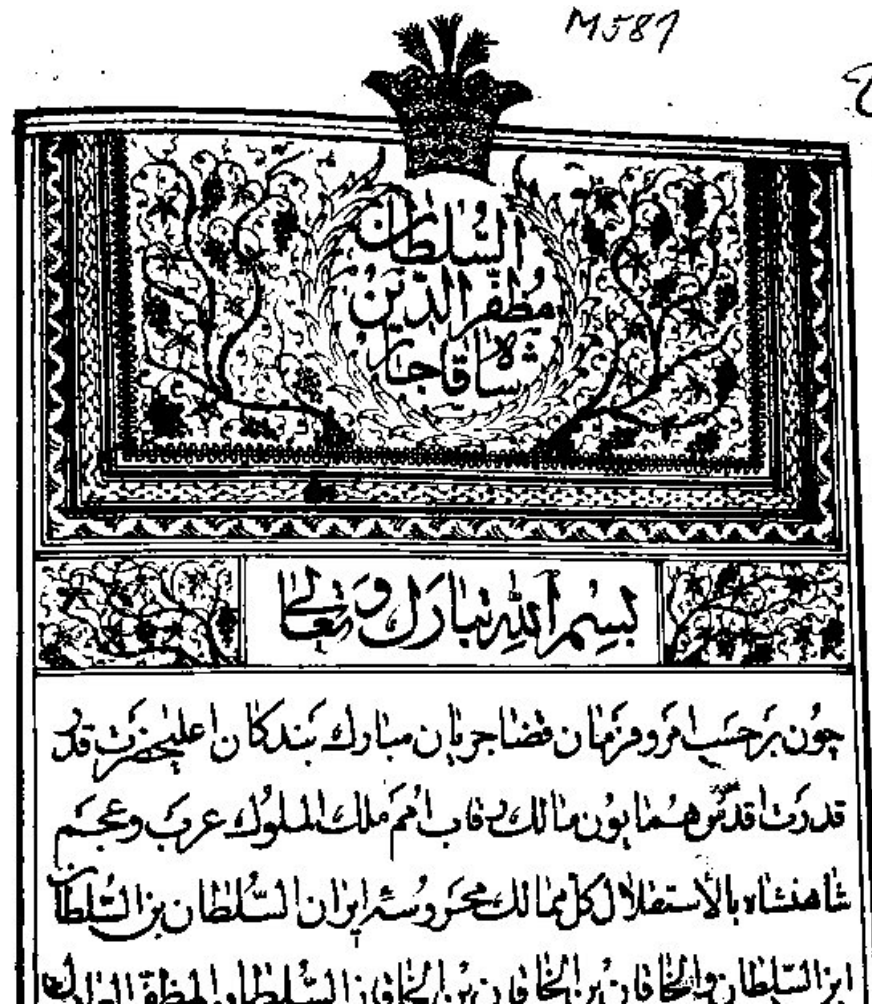 M587
السُّلطان
مُظفّر الدّین
شاه قاجار
بِسْمِ اللهِ تَبارَكَ وَتَعالیٰ
چون بَرحَسَب امر و فرمان قضا جریان مبارك بَندکان اعلیحضرت قدر
قدرت اقدس هُمایون مالك رقاب اُمَم ملك الملوك عرب و عجم
شاهنشاه بالأستقلال کل ممالك محروسهٔ ایران السُّلطان بن السُّلطان
ابن السلطان والخاقان بن الخاقان بن الخاقان السلطان المظفر